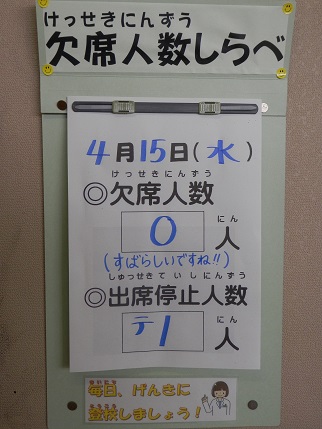 けっせきにんずう
欠席人数しらべ
4月15日(水)
けっせきにんずう
◎欠席人数
にん
0人
(すばらしいですね!!)
しゅっせきていしにんずう
◎出席停止人数
にん
テ1人
まいにち
毎日、げんきに
とうこう
登校しましょう!